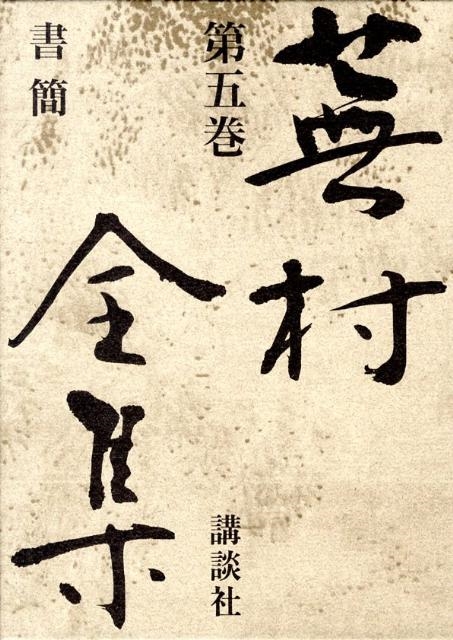 蕪村
全集
第五巻
書簡
講談社